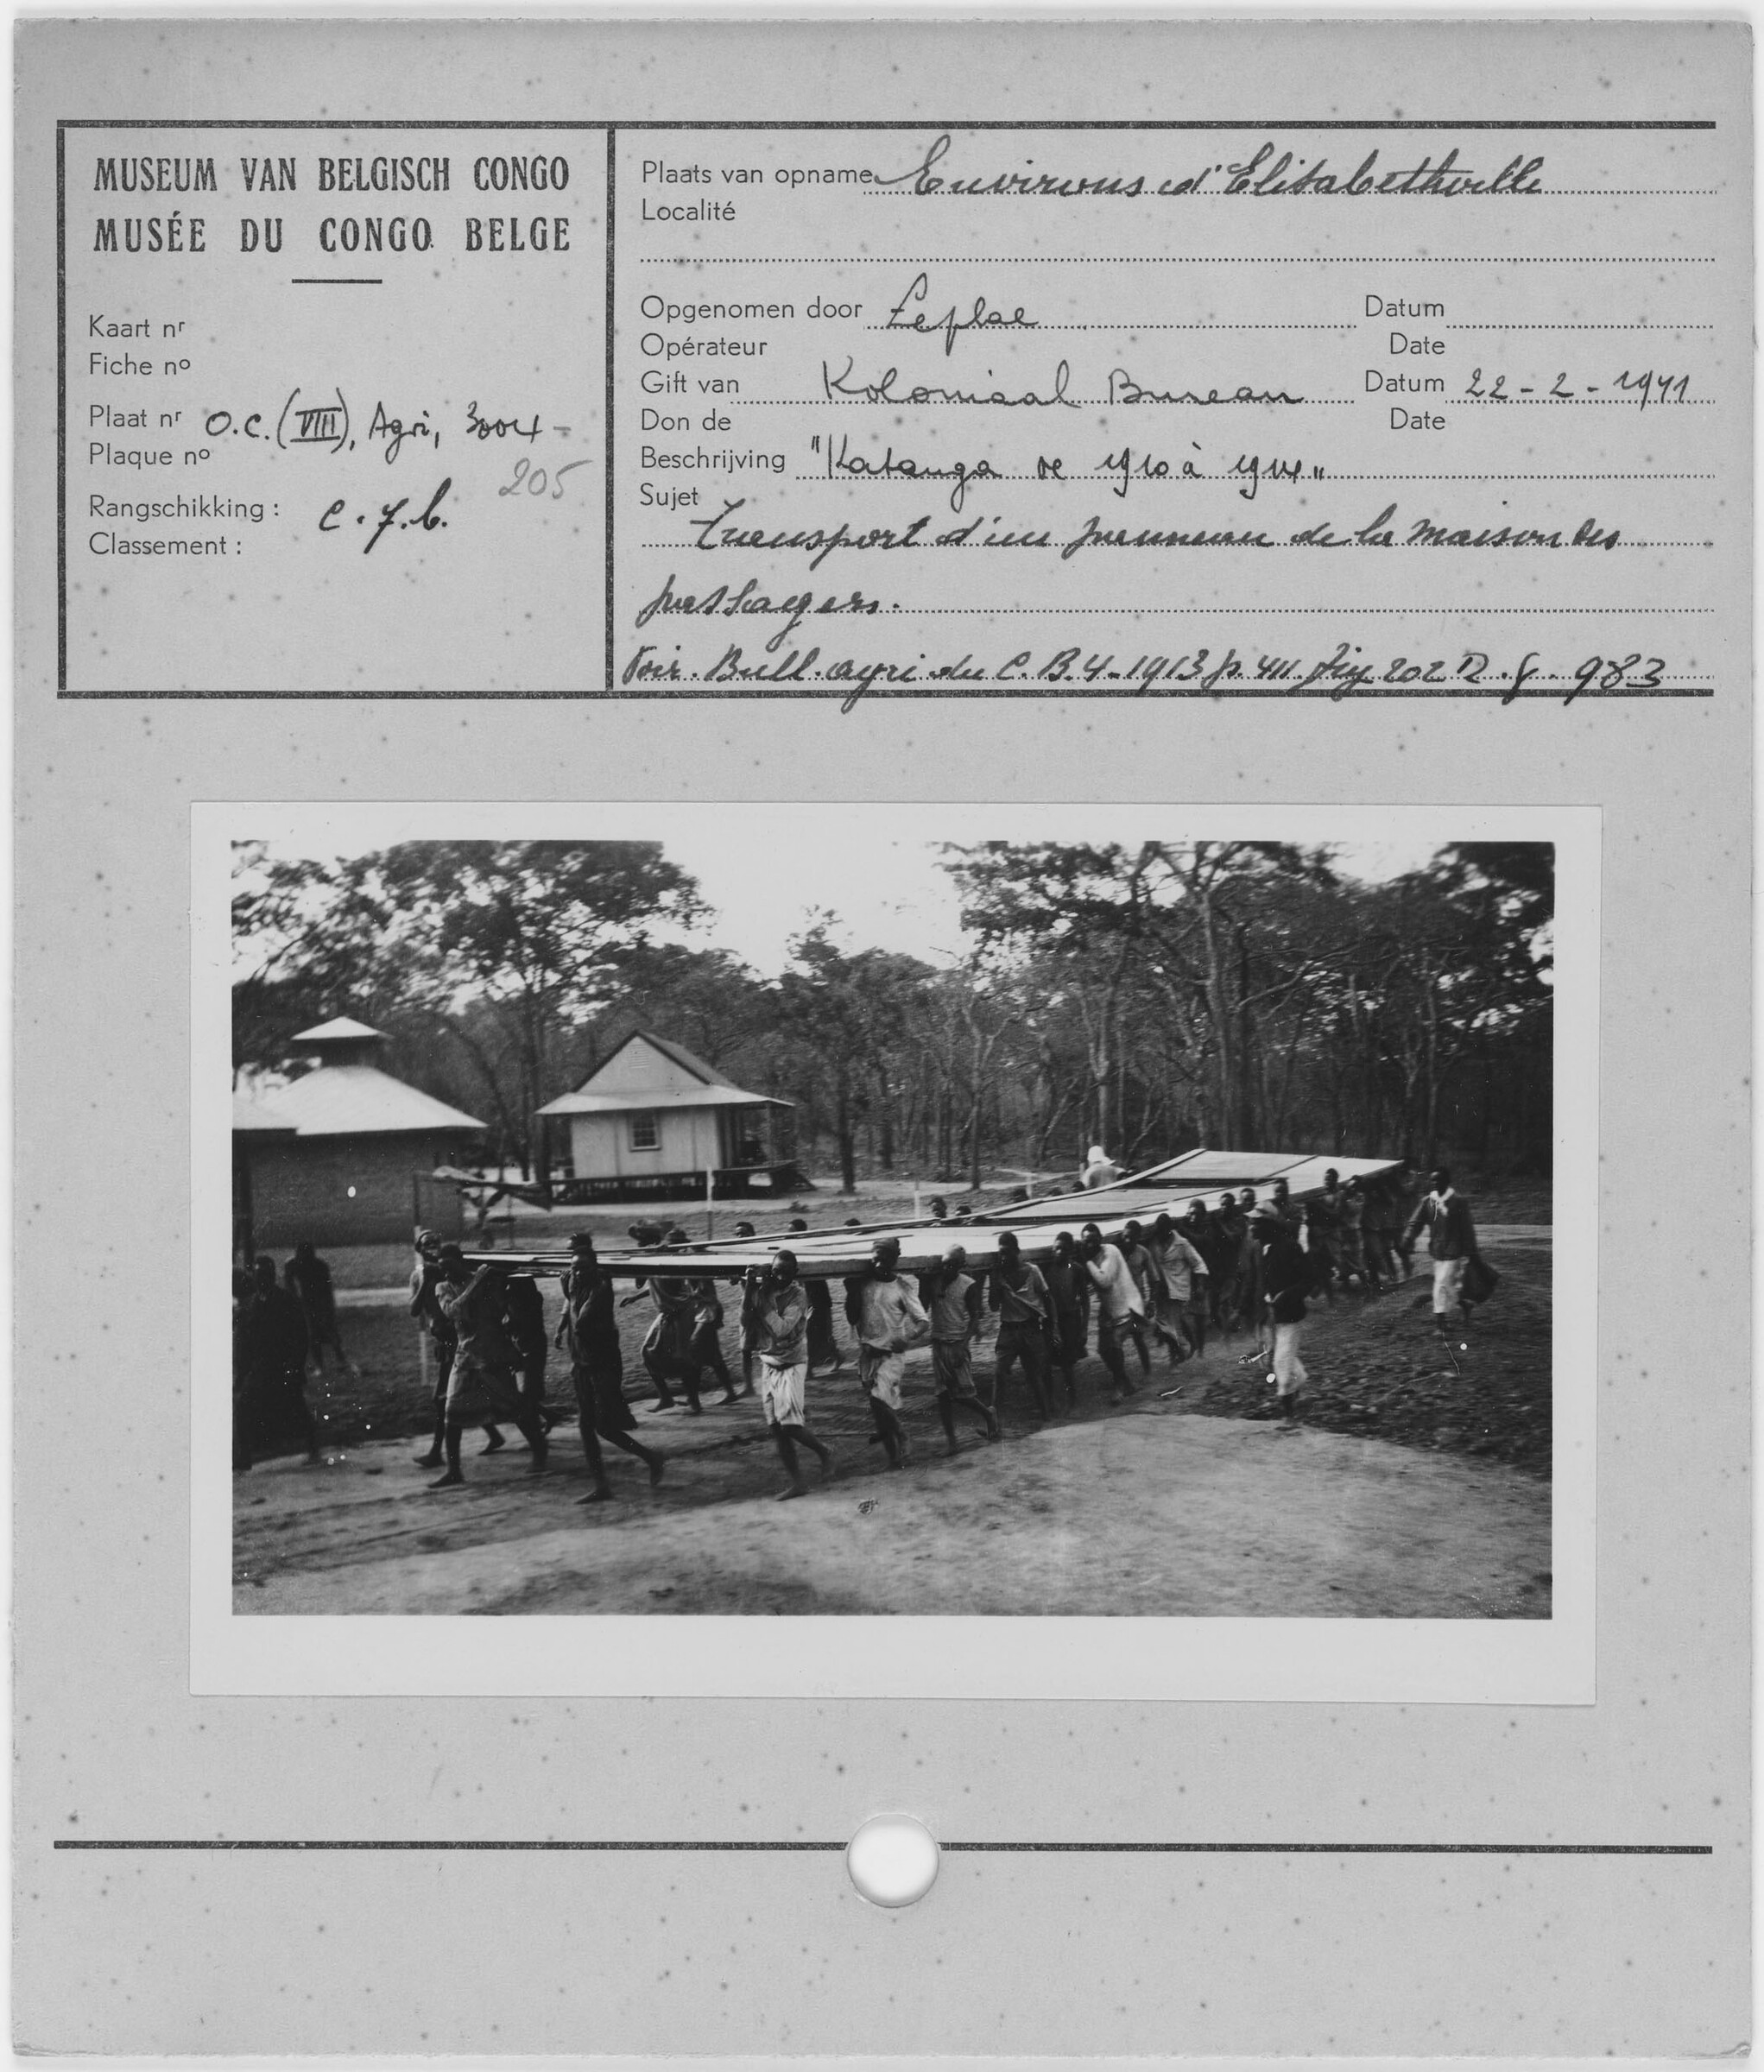 MUSEUM VAN BELGISCH CONGO
MUSÉE DU CONGO BELGE
Kaart nr
Fiche no
Plaat nr O.C. (VIII), Agri, 3004 -
Plaque no
205
Rangschikking : C.7.b.
Classement :
Plaats van opname Environs d'Elisabethville
Localité
Opgenomen door Leplae Datum
Opérateur Date
Gift van Koloniaal Bureau Datum 22-2-1941
Don de Date
Beschrijving "Katanga de 1910 à 1914"
Sujet
Transport d'un panneau de la maison des
passagers.
Voir. Bull. agri du C.B. 4-1913 p. 411 Fig 202 983